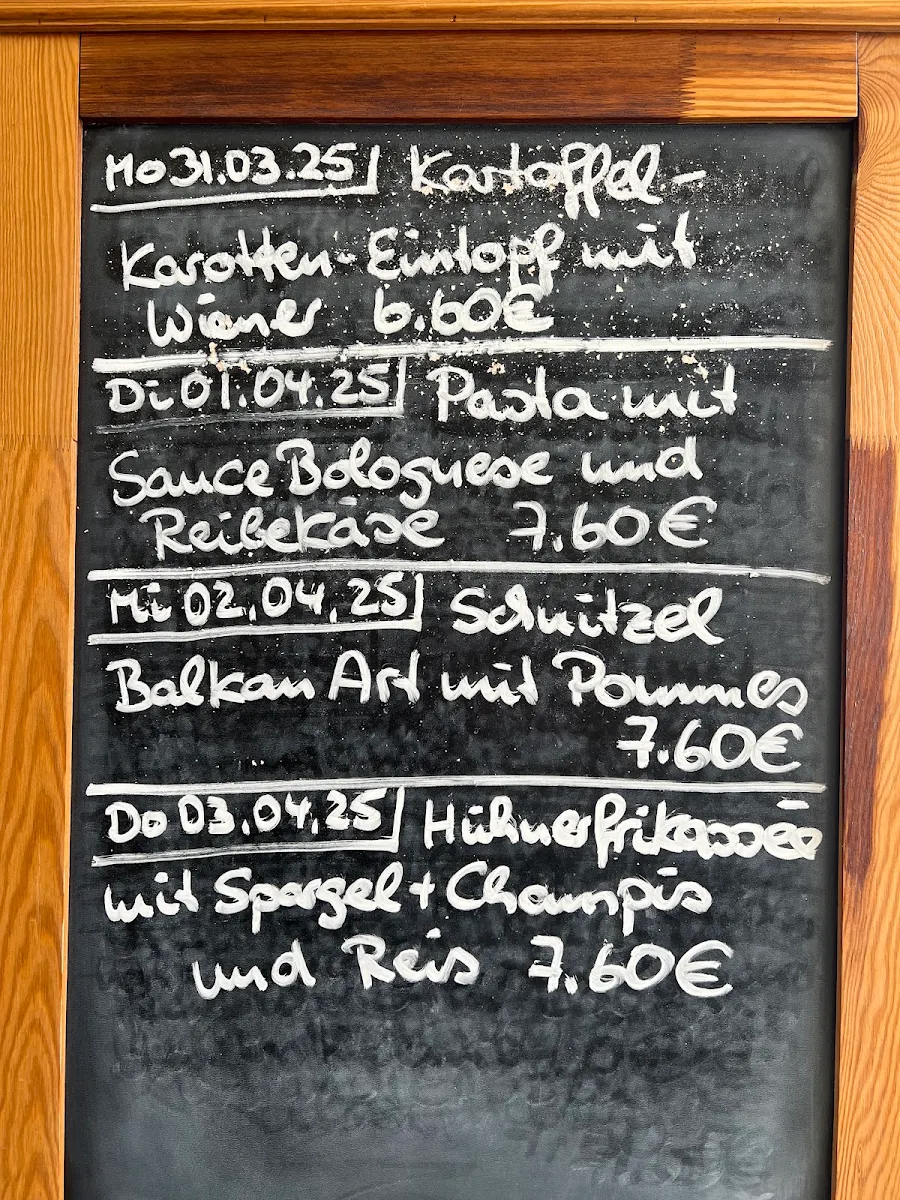 Mo 31.03.25 Kartoffel-
Karotten-Eintopf mit
Wiener 6.60€
Di 01.04.25 Pasta mit
Sauce Bolognese und
Reibekäse 7.60€
Mi 02.04.25 Schnitzel
Balkan Art mit Pommes
7.60€
Do 03.04.25 Hühnerfrikassee
mit Spargel + Champis
und Reis 7.60€